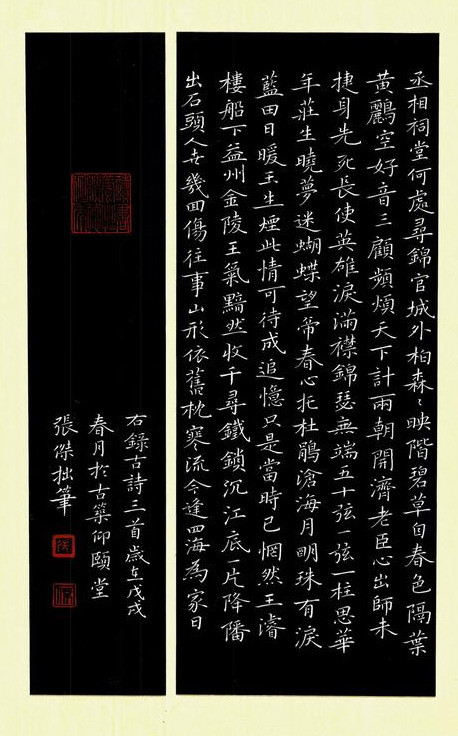 丞相祠堂何處尋錦官城外柏森〻映階碧草自春色隔葉
黃鸝空好音三顧頻煩天下計兩朝開濟老臣心出師未
捷身先死長使英雄淚滿襟錦瑟無端五十弦一弦一柱思華
年莊生曉夢迷蝴蝶望帝春心托杜鵑滄海月明珠有淚
藍田日暖玉生煙此情可待成追憶只是當時已惘然王濬
樓船下益州金陵王氣黯然收千尋鐵鎖沉江底一片降旛
出石頭人世幾回傷往事山形依舊枕寒流今逢四海為家日
右錄古詩三首歲在戊戌
春月於古築仰頤堂
張傑拙筆